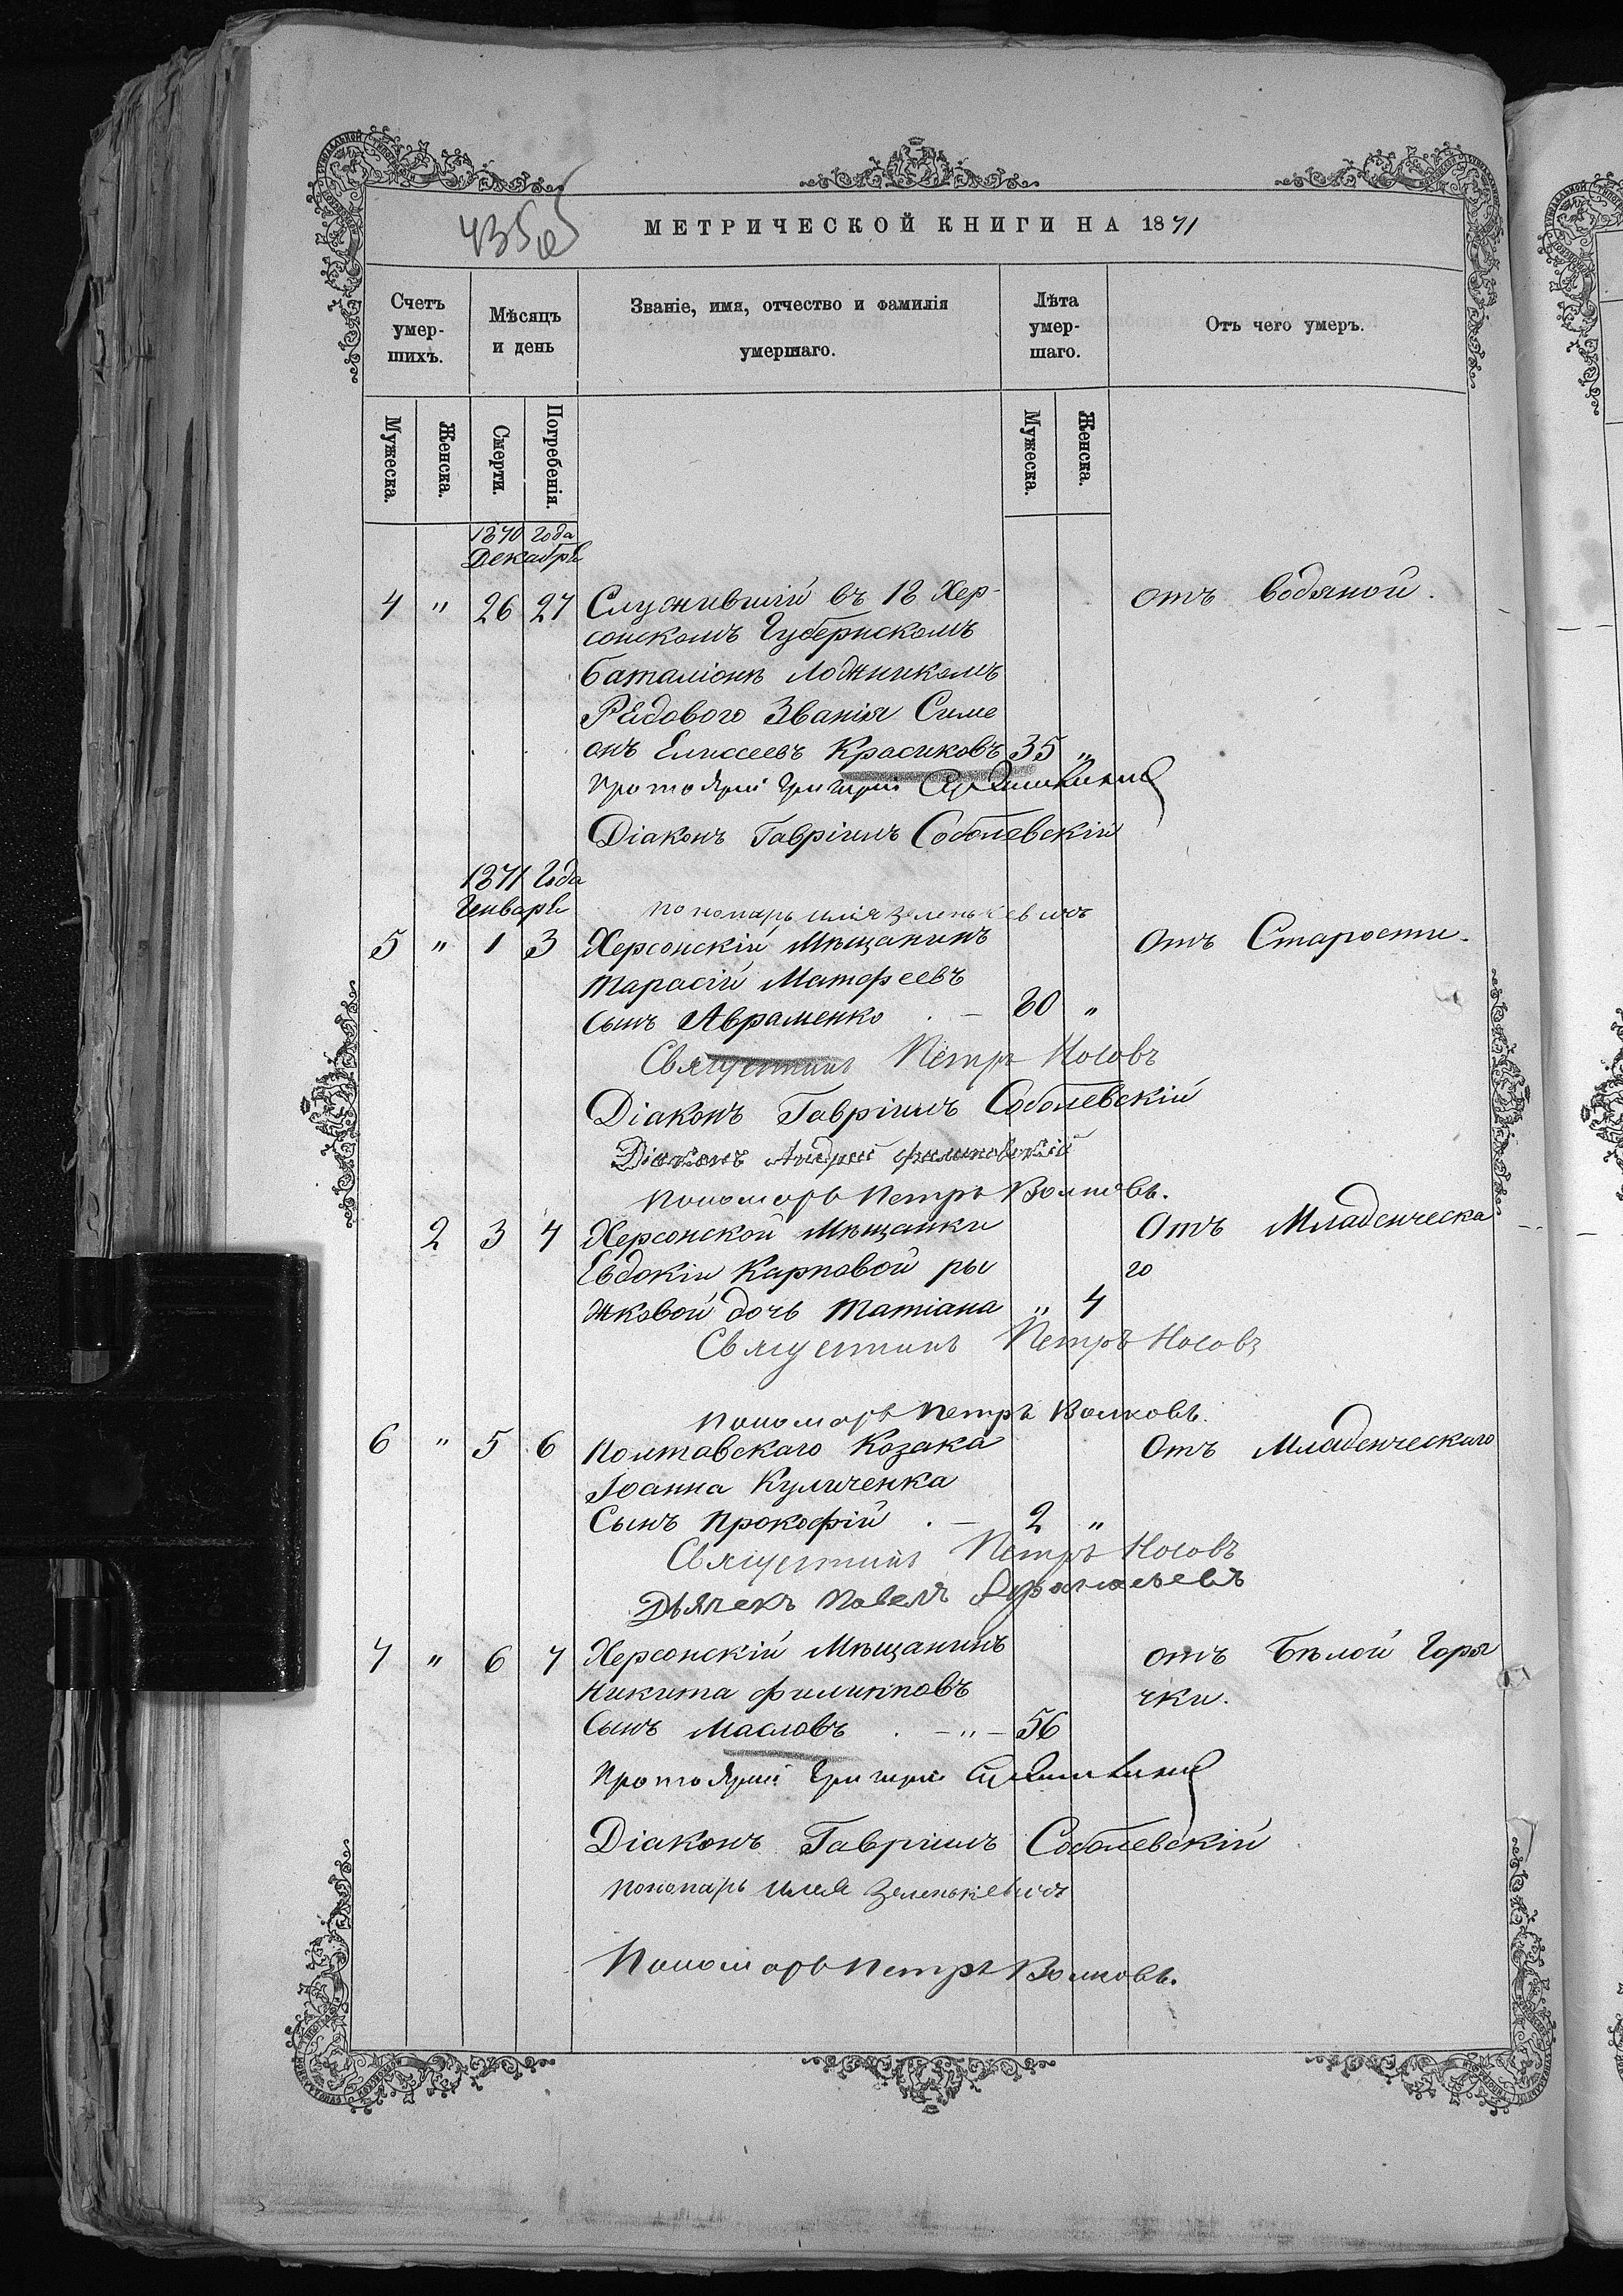 435 об
МЕТРИЧЕСКОЙ КНИГИ НА 1871
Счетъ умер-шихъ.
Мѣсяцъ и день
Званіе, имя, отчество и фамилія умершаго.
Лѣта умер-шаго.
Отъ чего умеръ.
Мужеска.
Женска.
Смерти.
Погребенія.
Мужеска.
Женска.
1870 года
Декабрь
4 " 26 27 Служившій въ 12 Хер- отъ водяной.
сонскомъ Губернскомъ
баталіонѣ
Рядового Званія Симе
онъ Елисеевъ Красиковъ 35 "
Протоіерей Григорій
Діаконъ Гавріилъ Соболевскій
1871 Года
Генварь
пономарь Илія Зеленькевичъ
5 " 1 3 Херсонскій Мѣщанинъ Отъ Старости.
Тарасій Матфеевъ
сынъ Авраменко . — 80 "
Священникъ Петръ Носовъ
Діаконъ Гавріилъ Соболевскій
Діаконъ Андрей
Пономарь Петръ Волковъ.
2 3 4 Херсонской Мѣщанки Отъ Младенческа
Евдокіи Карповой ры го
жковой дочь Татіана " 4
Священникъ Петръ Носовъ
Пономарь Петръ Волковъ.
6 " 5 6 Полтавскаго Козака Отъ Младенческаго
Іоанна Куличенка
Сынъ Прокофій . — 2 "
Священникъ Петръ Носовъ
Дьячекъ Павелъ
7 " 6 7 Херсонскій Мѣщанинъ отъ Бѣлой Горя
Никита Филипповъ чки.
Сынъ Масловъ . — " — 56
Протоіерей Григорій
Діаконъ Гавріилъ Соболевскій
пономарь Илія Зеленькевичъ
Пономарь Петръ Волковъ.